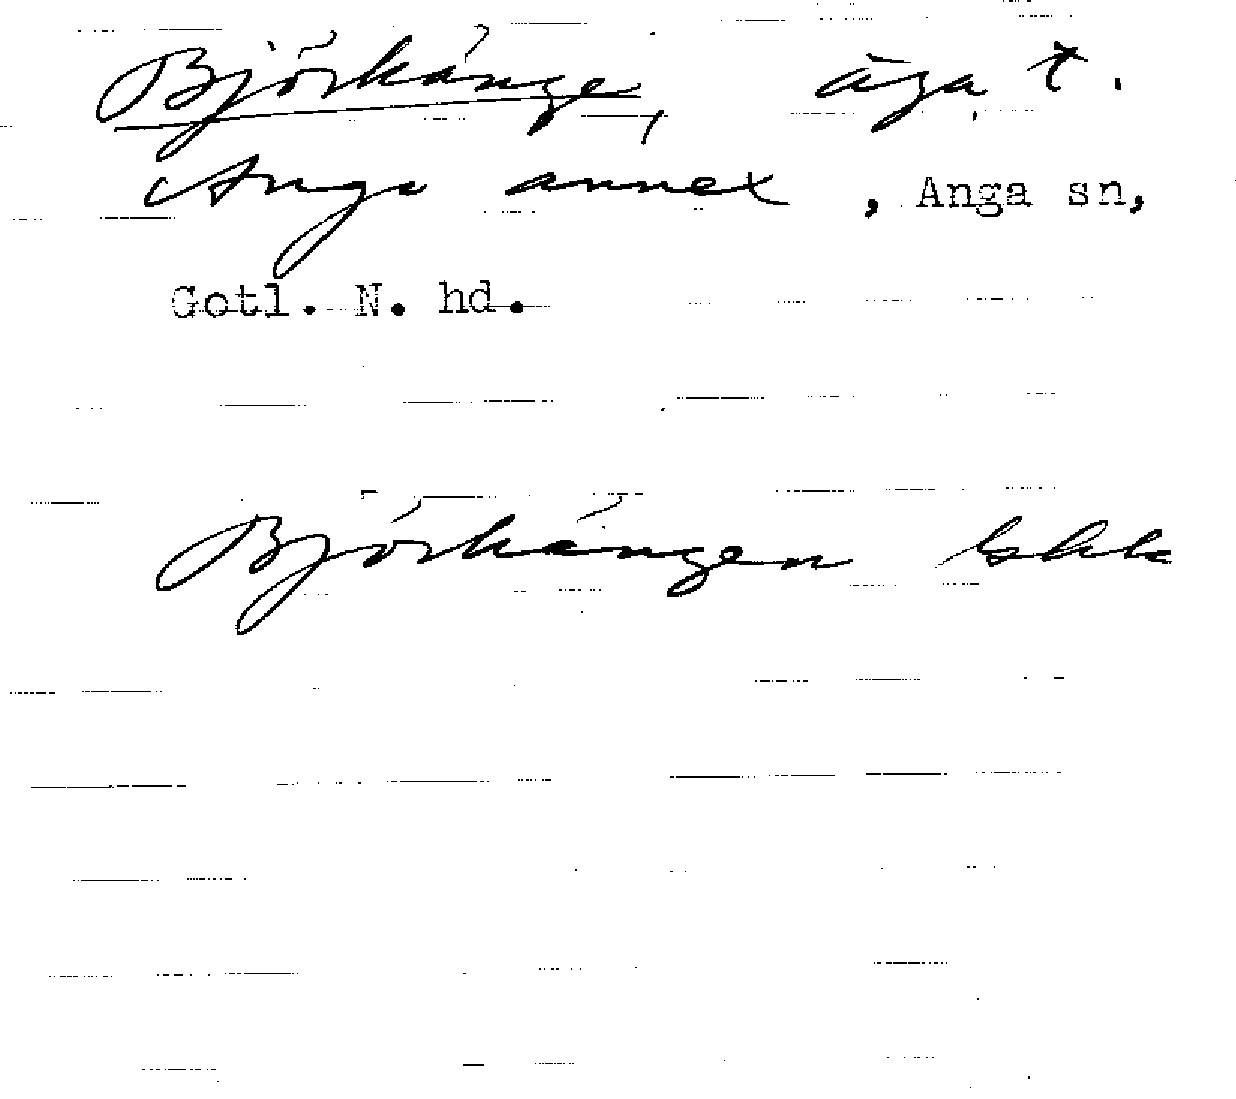 Björkänge, äga t.
Anga annex, Anga sn,
Gotl. N. hd.
Björkängen